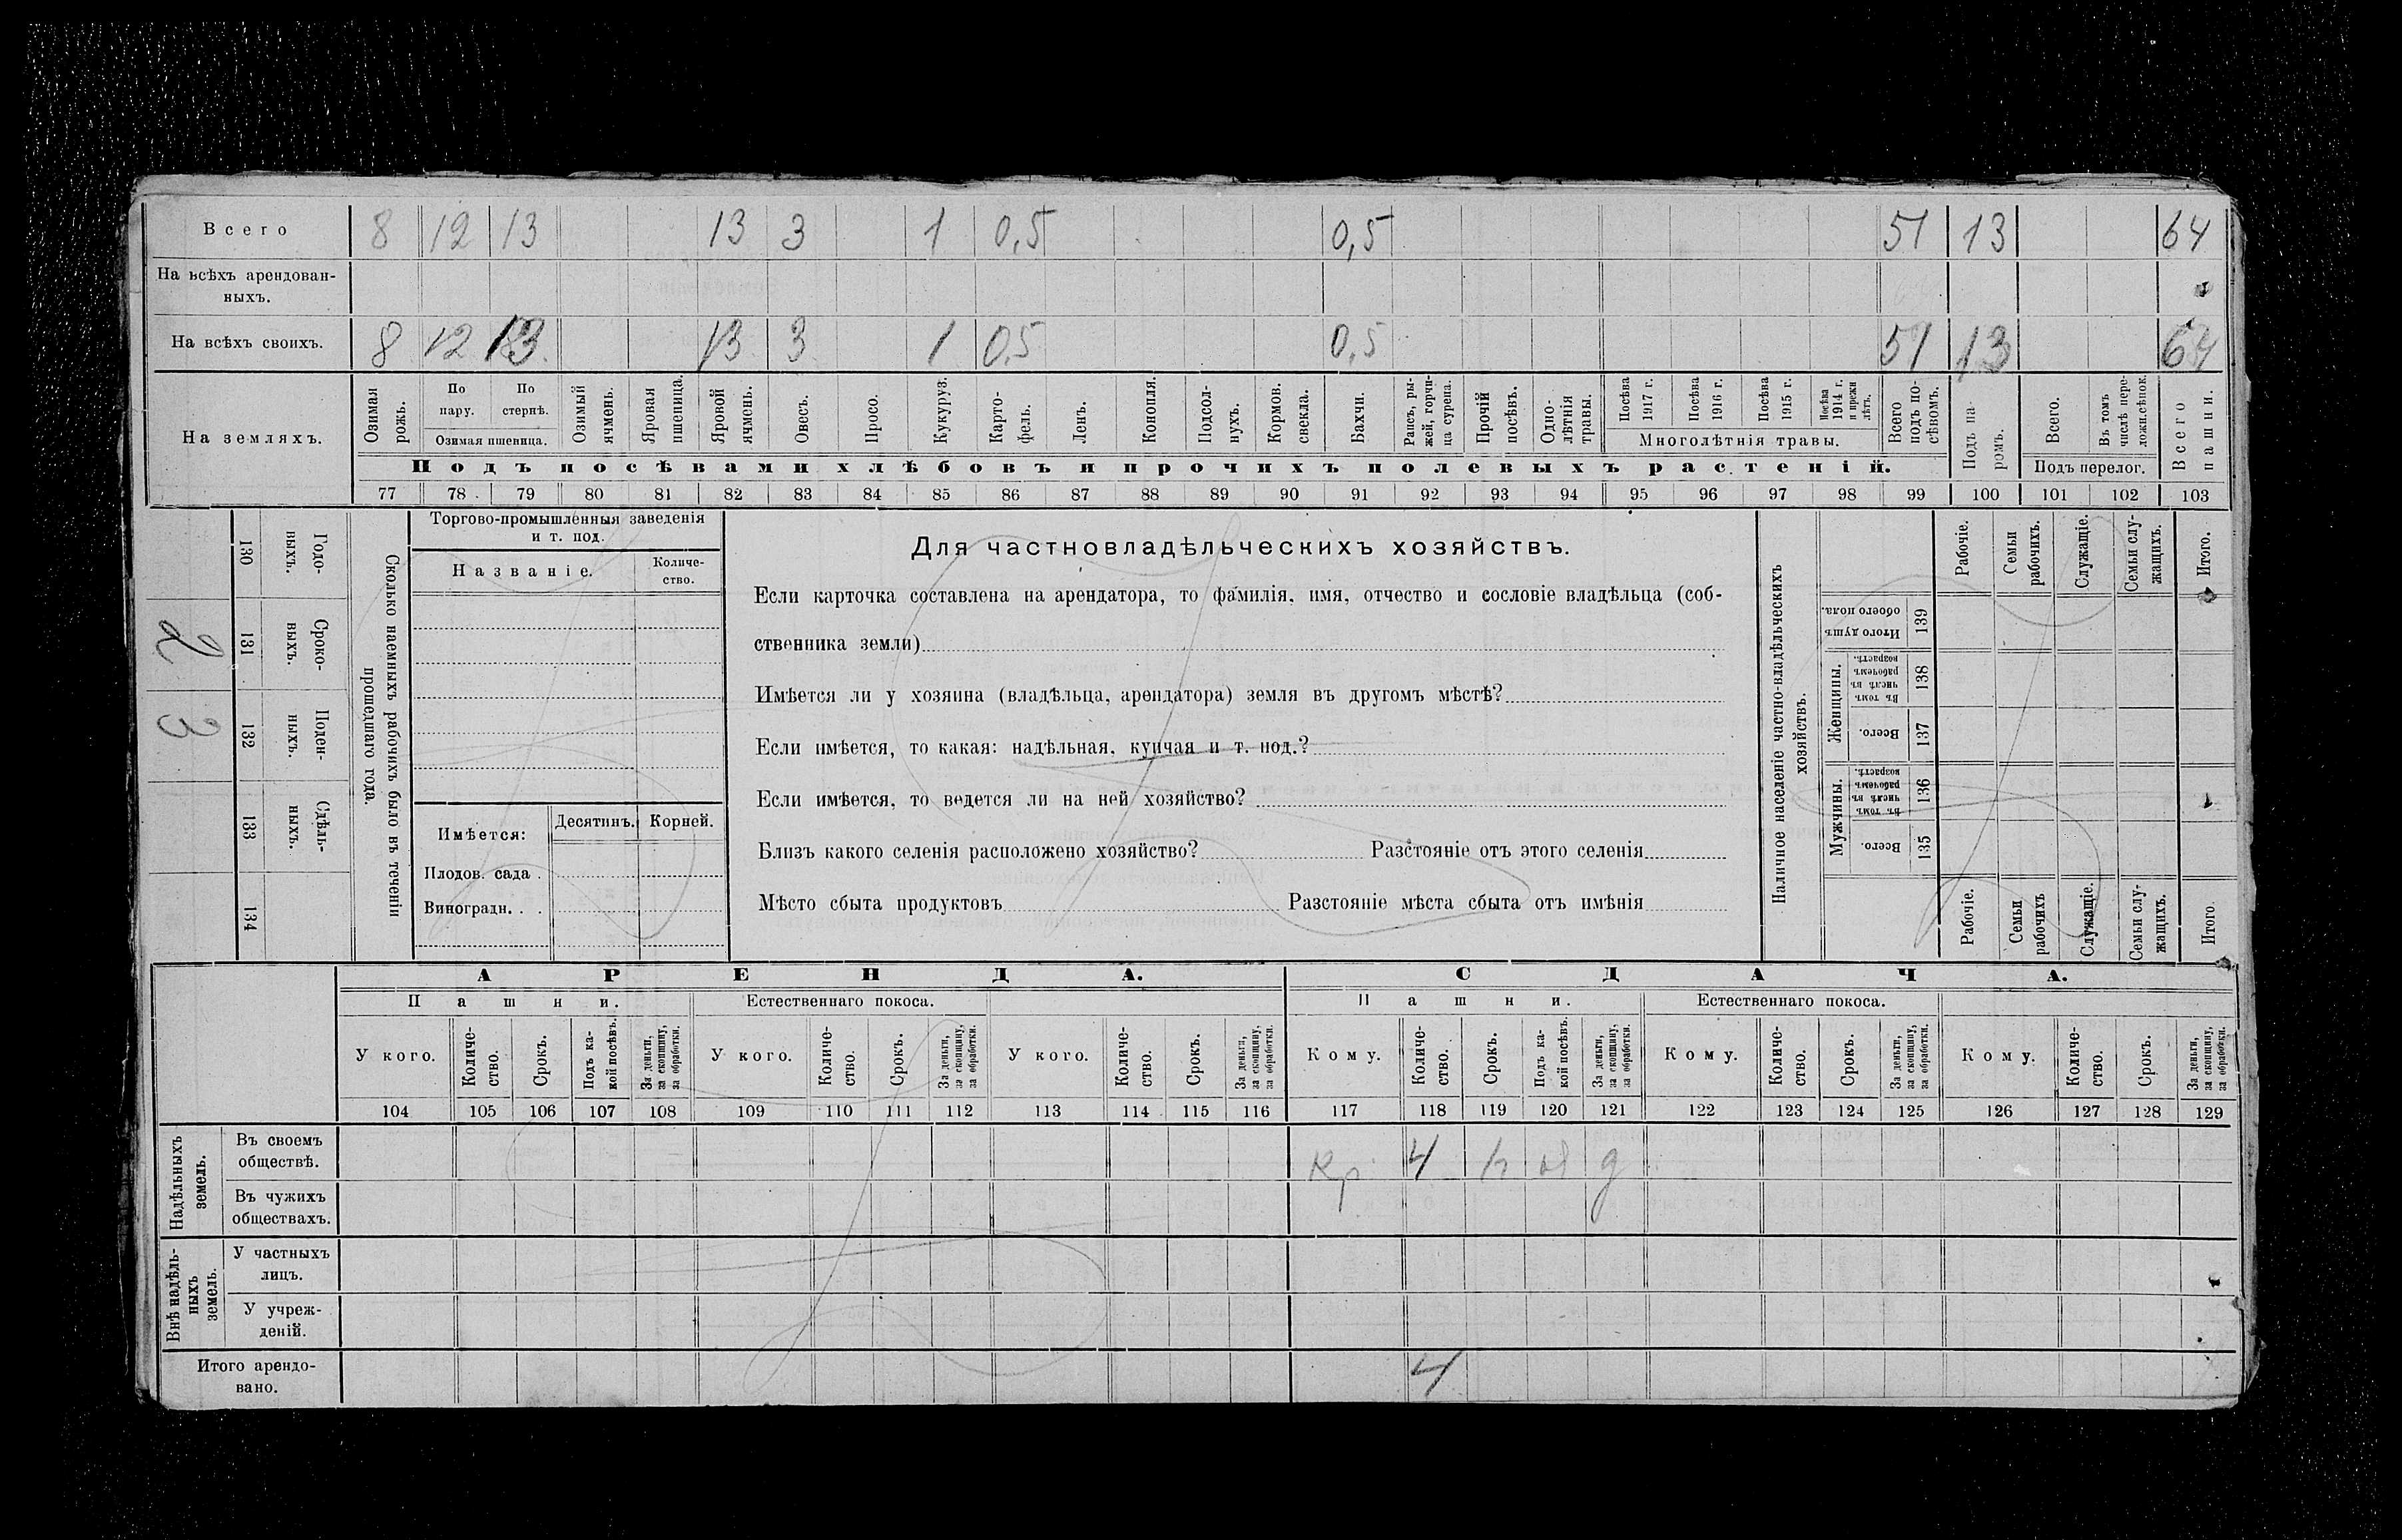 Всего 8 12 13 13 3 1 0,5 0,5 51 13 64
На всѣхъ арендован-
ныхъ.
На всѣхъ своихъ. 8 12 13 13 3 1 0,5 0,5 51 13 64
На земляхъ.
Озимая рожь.
По пару.
По стернѣ.
Озимая пшеница.
Озимый ячмень.
Яровая пшеница.
Яровой ячмень.
Овесъ.
Просо.
Кукуруз.
Карто-
фель.
Ленъ.
Конопля.
Подсол-
нухъ.
Кормов.
свекла.
Бахчи.
Рапсъ, ры-
жей, горчи-
ца сурепа.
Прочій
посѣвъ.
Одно-
лѣтнія
травы.
Посѣва
1917 г.
Посѣва
1916 г.
Посѣва
1915 г.
Посѣва
1914 г.
и прежн
лѣтъ.
Многолѣтнія травы.
Всего
подъ по-
сѣвомъ.
Подъ па-
ромъ.
Всего.
Въ томъ
числѣ пере-
ложн.сѣнок.
Подъ перелог.
Всего
пашни.
Подъ посѣвами хлѣбовъ и прочихъ полевыхъ растеній.
77 78 79 80 81 82 83 84 85 86 87 88 89 90 91 92 93 94 95 96 97 98 99 100 101 102 103
Годо-
ныхъ.
130
Сроко-
ныхъ.
131
2
Поден-
ныхъ.
132
3
Сдѣль-
ныхъ.
133
134
Сколько наемныхъ рабочихъ было въ теченіи
прошедшаго года.
Торгово-промышленныя заведенія
и т. под.
Названіе.
Количе-
ство.
Имѣется:
Десятинъ.
Корней.
Плодов. сада .
Виноградн. . .
Для частновладѣльческихъ хозяйствъ.
Если карточка составлена на арендатора, то фамилія, имя, отчество и сословіе владѣльца (соб-
ственника земли)
Имѣется ли у хозяина (владѣльца, арендатора) земля въ другомъ мѣстѣ?
Если имѣется, то какая: надѣльная, купчая и т. под.?
Если имѣется, то ведется ли на ней хозяйство?
Близъ какого селенія расположено хозяйство? Разстояніе отъ этого селенія
Мѣсто сбыта продуктовъ Разстояніе мѣста сбыта отъ имѣнія
Наличное населеніе частно-владѣльческихъ
хозяйствъ.
Рабочіе.
Семьи
рабочихъ.
Служащіе.
Семьи слу-
жащихъ.
Итого.
Итого душъ
обоего пола.
139
Женщины.
Въ томъ
числѣ въ
рабочемъ
возрастѣ.
138
Всего.
137
Мужчины.
Въ томъ
числѣ въ
рабочемъ
возрастѣ.
136
Всего.
135
Рабочіе.
Семьи
рабочихъ
Служащіе.
Семьи слу-
жащихъ.
Итого
АРЕНДА. СДАЧА.
Пашни. Естественнаго покоса. Пашни. Естественнаго покоса.
У кого.
Количе-
ство.
Срокъ.
Подъ ка-
кой посѣвъ.
За деньги,
за скопщину,
за обработки.
У кого.
Количе-
ство.
Срокъ.
За деньги,
за скопщину,
за обработки.
У кого.
Количе-
ство.
Срокъ.
За деньги,
за скопщину,
за обработки.
Кому.
Количе-
ство.
Срокъ.
Подъ ка-
кой посѣвъ.
За деньги,
за скопщину,
за обработки.
Кому.
Количе-
ство.
Срокъ.
За деньги,
за скопщину,
за обработки.
Кому.
Количе-
ство.
Срокъ.
За деньги,
за скопщину,
за обработки.
104 105 106 107 108 109 110 111 112 113 114 115 116 117 118 119 120 121 122 123 124 125 126 127 128 129
Надѣльныхъ
земель.
Въ своемъ
обществѣ.
Кр 4 д
Въ чужихъ
обществахъ.
Внѣ надѣль-
ныхъ
земель.
У частныхъ
лицъ.
У учреж-
деній.
Итого арендо-
вано.
4